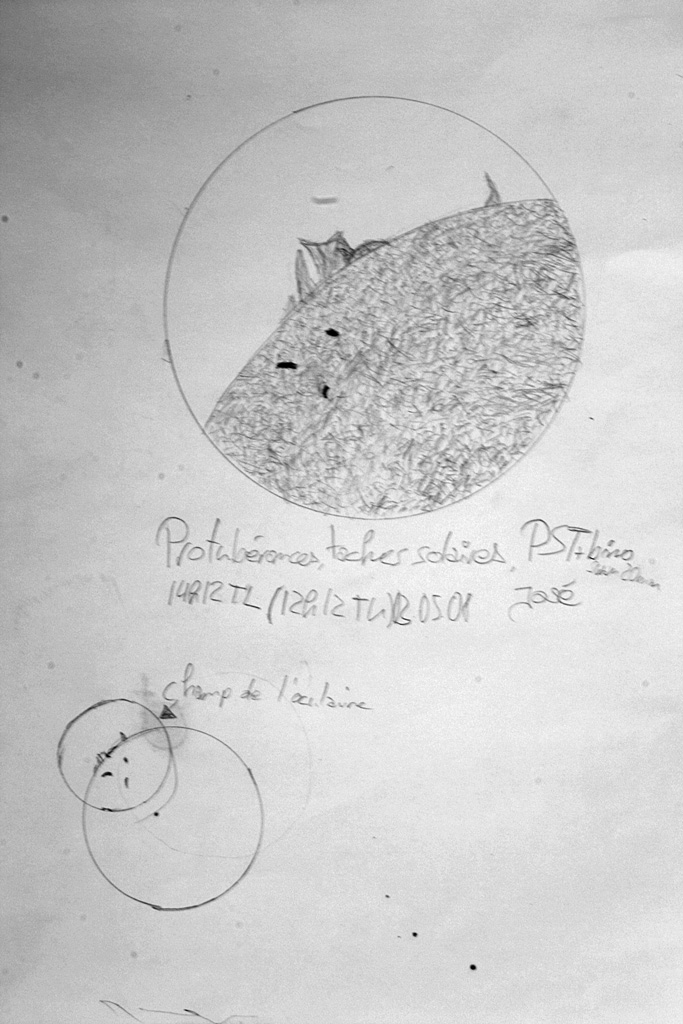 Protubérances, taches solaires, PST+bino
14h12 TL (12h12 TU) José
Champ de l'oculaire